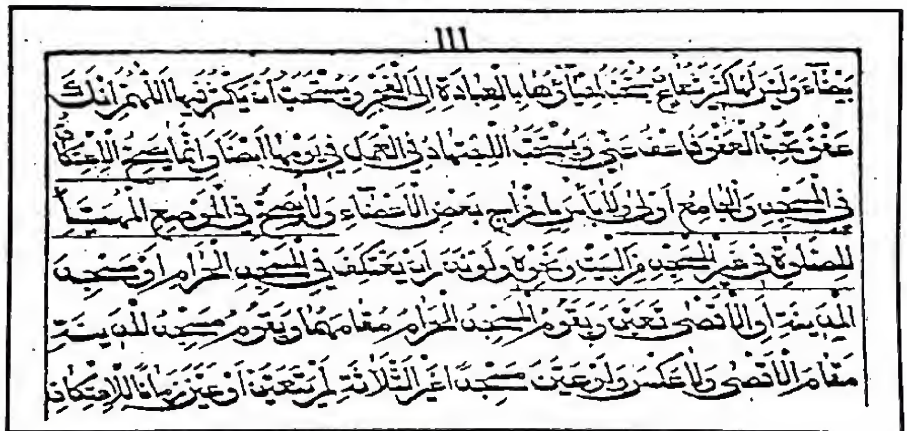 ١١١
بيضاء وليس لها كثر شعاع يستحب احياؤها بالعبادة الى الفجر ويستحب ان يكثر فيها اللهم انك
عفو تحب العفو فاعف عني ويستحب الاجتهاد في العمل في يومها ايضا وانما يصح الاعتكاف
في المسجد والجامع اولى ولا بأس باخراج بعض الاعضاء ولا يصح في الموضع المهيأ
للصلوة في غير المسجد من البيت ونحوه ولو نذر ان يعتكف في المسجد الحرام او مسجد
المدينة او الاقصى تعين ويقوم المسجد الحرام مقامهما ويقوم مسجد المدينة
مقام الاقصى ولا عكس ولو عين مسجدا غير الثلاثة لم يتعين او عين زمانا للاعتكاف